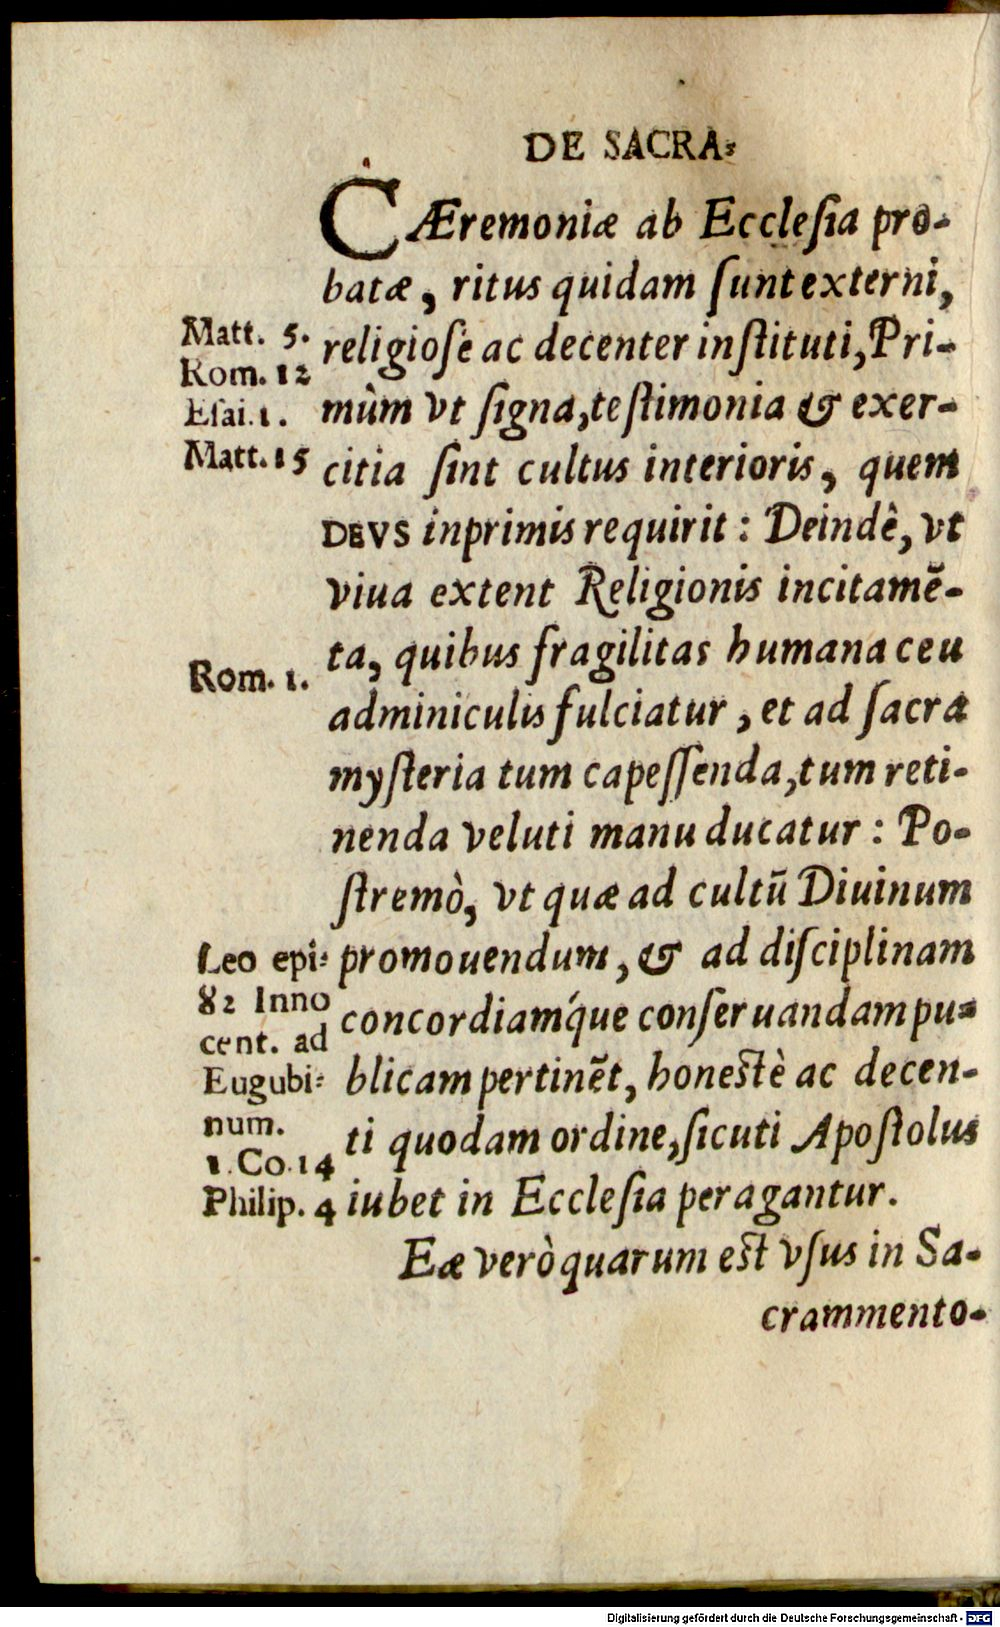 DE SACRA-
CÆremoniæ ab Ecclesia pro-
batæ, ritus quidam sunt externi,
Matt. 5.
religiose ac decenter instituti, Pri-
Rom. 12
Esai. 1.
mùm vt signa, testimonia & exer-
Matt. 15
citia sint cultus interioris, quem
DEVS inprimis requirit: Deindè, vt
viua extent Religionis incitamē-
ta, quibus fragilitas humana ceu
Rom. 1.
adminiculis fulciatur, et ad sacra
mysteria tum capessenda, tum reti-
nenda veluti manu ducatur: Po-
stremò, vt quæ ad cultū Diuinum
Leo epi-
promouendum, & ad disciplinam
82 Inno
concordiamq́ue conseruandam pu-
cent. ad
Eugubi-
blicam pertinēt, honestè ac decen-
num.
ti quodam ordine, sicuti Apostolus
1. Co. 14
Philip. 4
iubet in Ecclesia peragantur.
Eæ verò quarum est vsus in Sa-
crammento-
Digitalisierung gefördert durch die Deutsche Forschungsgemeinschaft - DFG